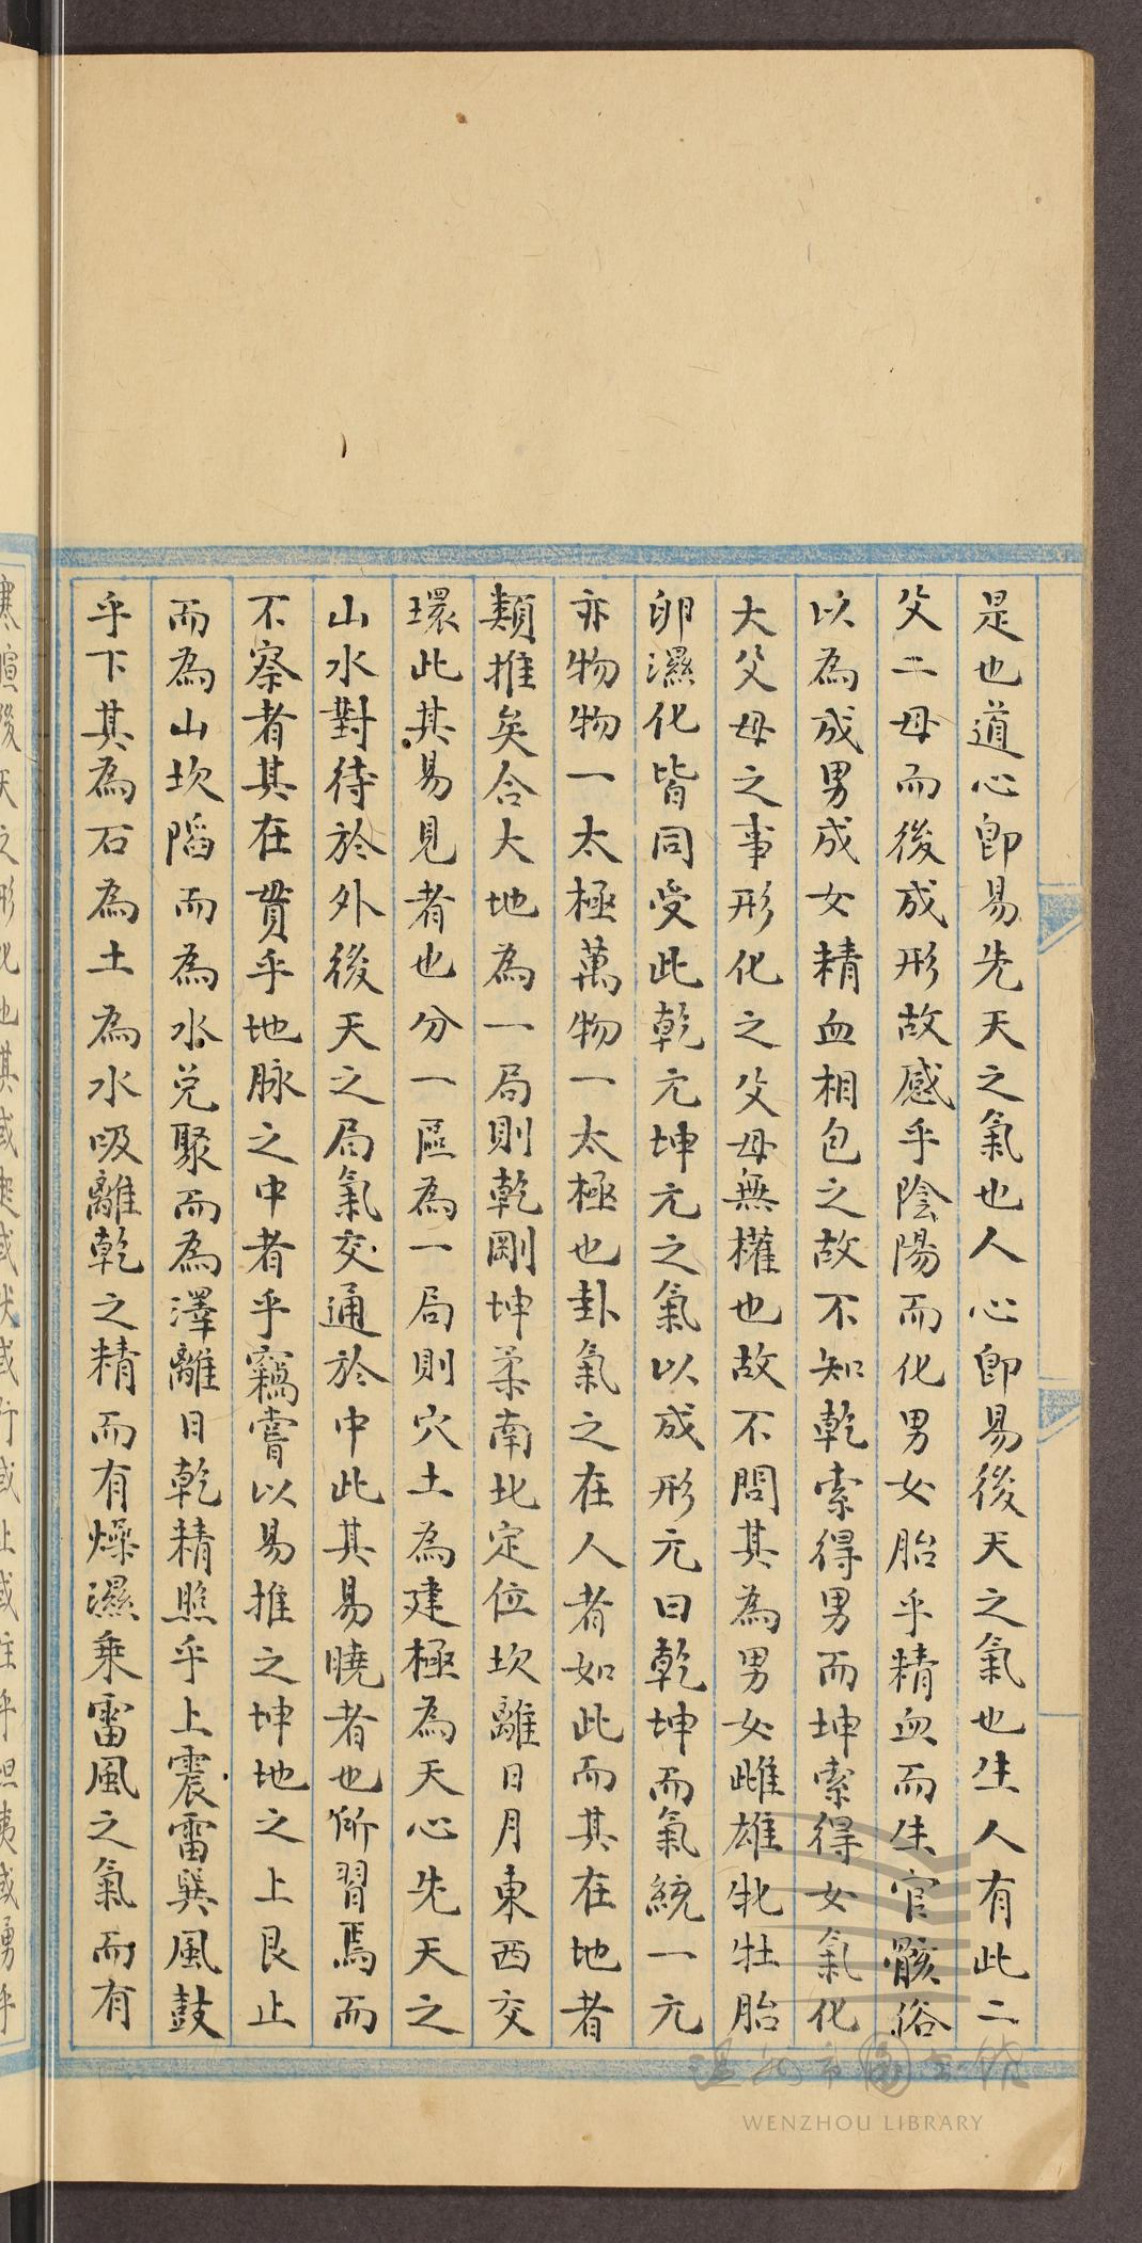 是也道心卽易先天之氣也人心卽易後天之氣也生人有此二
父二母而後成形故感乎陰陽而化男女胎乎精血而生官骸俗
以為成男成女精血相包之故不知乾索得男而坤索得女氣化
大父母之事形化之父母無權也故不問其為男女雌雄牝牡胎
卵濕化皆同受此乾元坤元之氣以成形元曰乾坤而氣統一元
亦物物一太極萬物一太極也卦氣之在人者如此而其在地者
類推矣合大地為一局則乾剛坤柔南北定位坎離日月東西交
環此其易見者也分一區為一局則穴土為建極為天心先天之
山水對待於外後天之局氣交通於中此其易曉者也所習焉而
不察者其在貫乎地脉之中者乎竊嘗以易推之坤地之上艮止
而為山坎陷而為水兌聚而為澤離日乾精照乎上震雷巽風鼓
乎下其為石為土為水吸離乾之精而有燥濕乘雷風之氣而有
WENZHOU LIBRARY